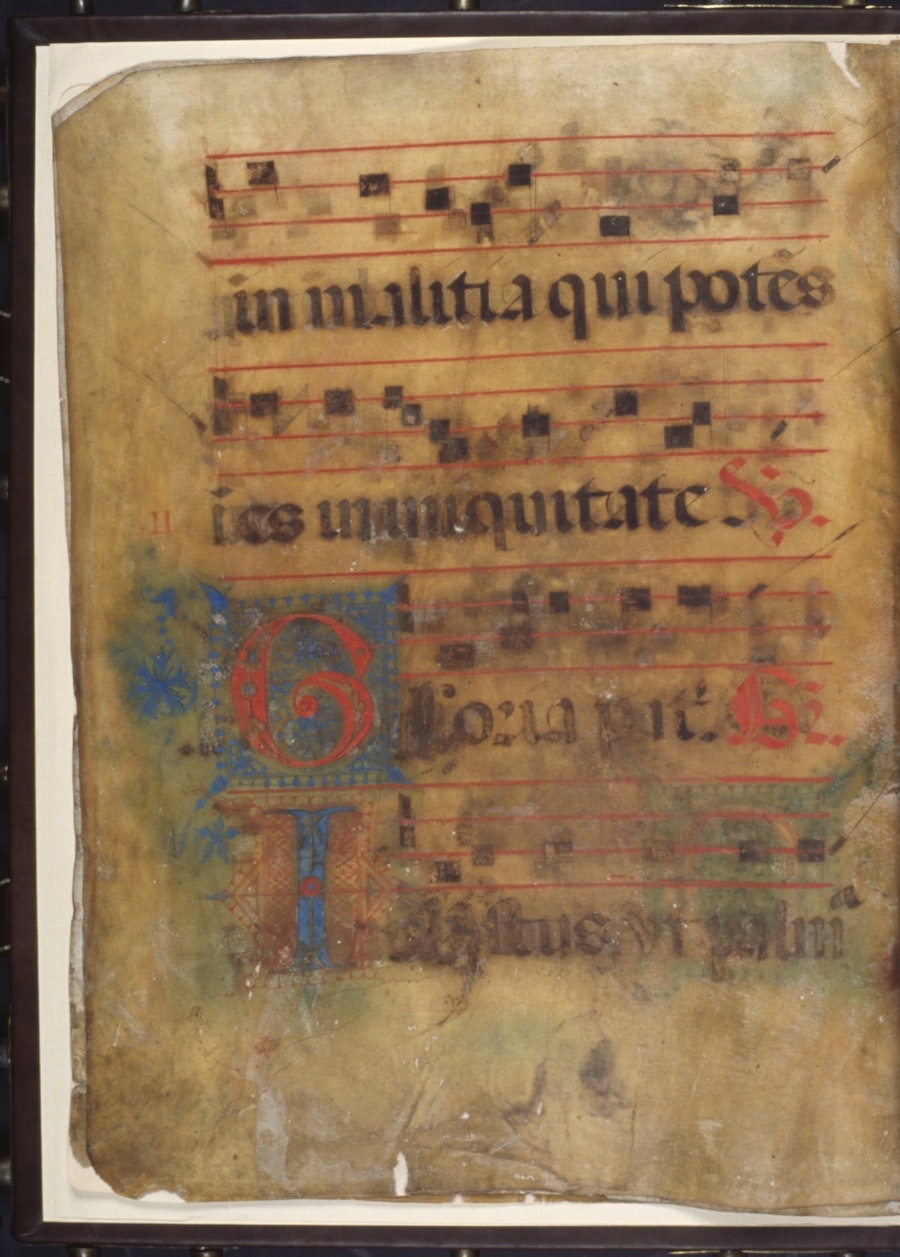 in malitia qui potẽs
ies in iniquitate ℣.
II
Gloria p̃ri. Gl.
Iustus ut palm̃a